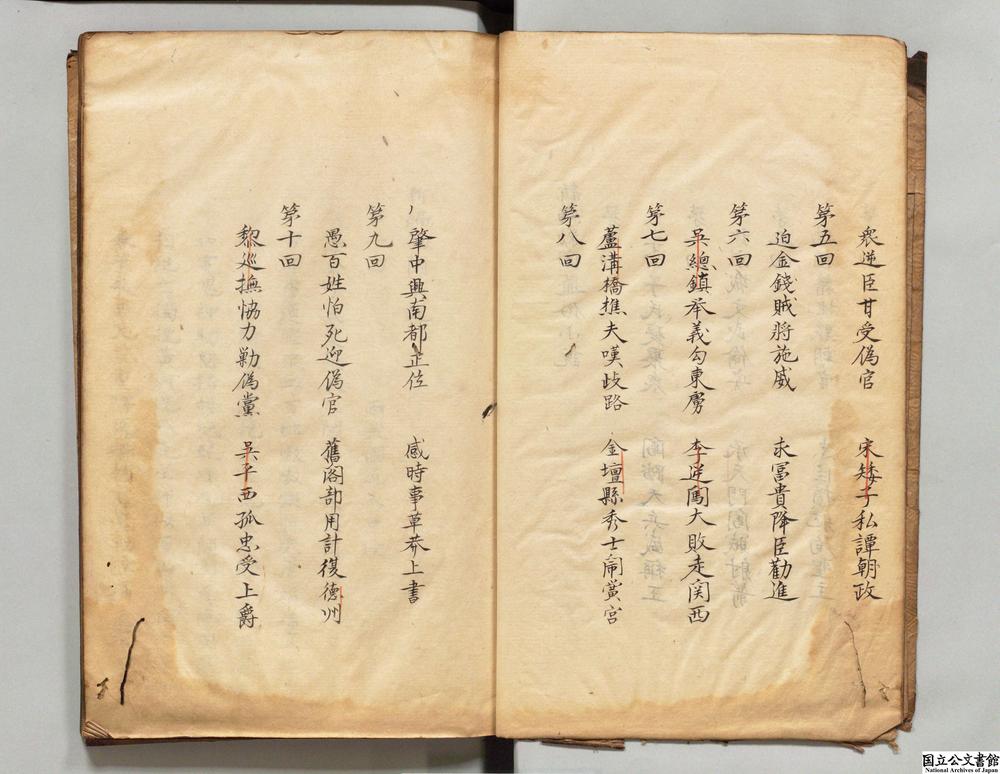 衆逆臣甘受偽官　宋矮子私譚朝政
第五回
迫金錢賊將施威　求冨貴降臣勸進
第六回
吳總鎮举義勾東虜　李逆闖大敗走関西
第七回
蘆溝橋樵夫嘆歧路　金壇縣秀士鬧黉宮
第八回
肇中興南都正位　感時事草莽上書
第九回
愚百姓怕死迎偽官　舊閣部用計復德州
第十回
黎巡撫恊力勦偽黨　吳平西孤忠受上爵
国立公文書館
National Archives of Japan